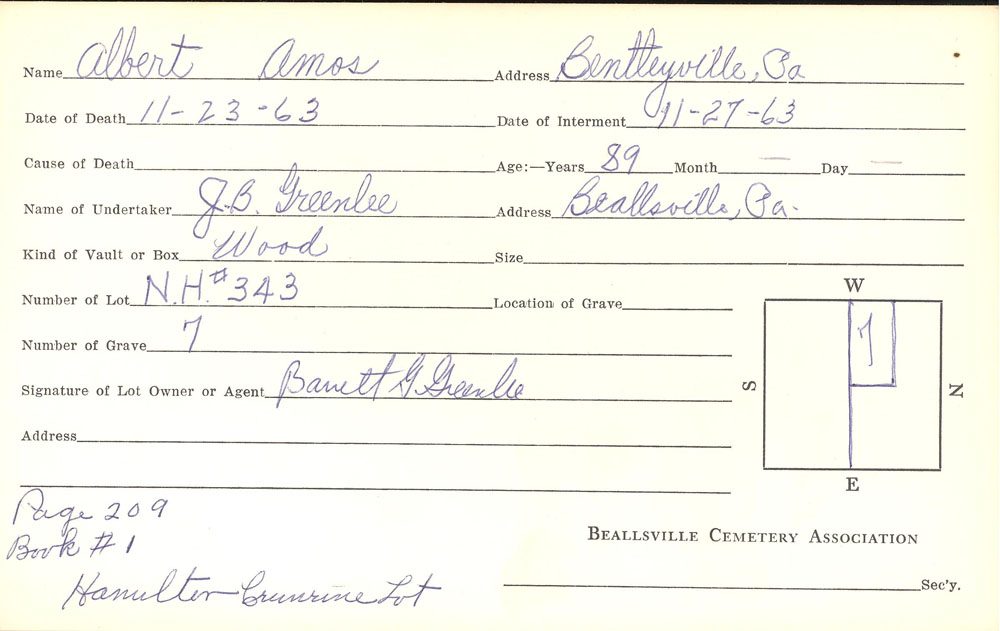 Name Albert Amos Address Bentleyville, Pa
Date of Death 11-23-63 Date of Interment 11-27-63
Cause of Death Age:—Years 89 Month — Day —
Name of Undertaker J.B. Greenlee Address Beallsville, Pa.
Kind of Vault or Box Wood Size
Number of Lot N.H. #343 Location of Grave
Number of Grave 7
Signature of Lot Owner or Agent Barrett G Greenlee
Address
W
S
7
N
E
Page 209
Book #1
Hamilton Crumrine Lot
BEALLSVILLE CEMETERY ASSOCIATION
Sec'y.